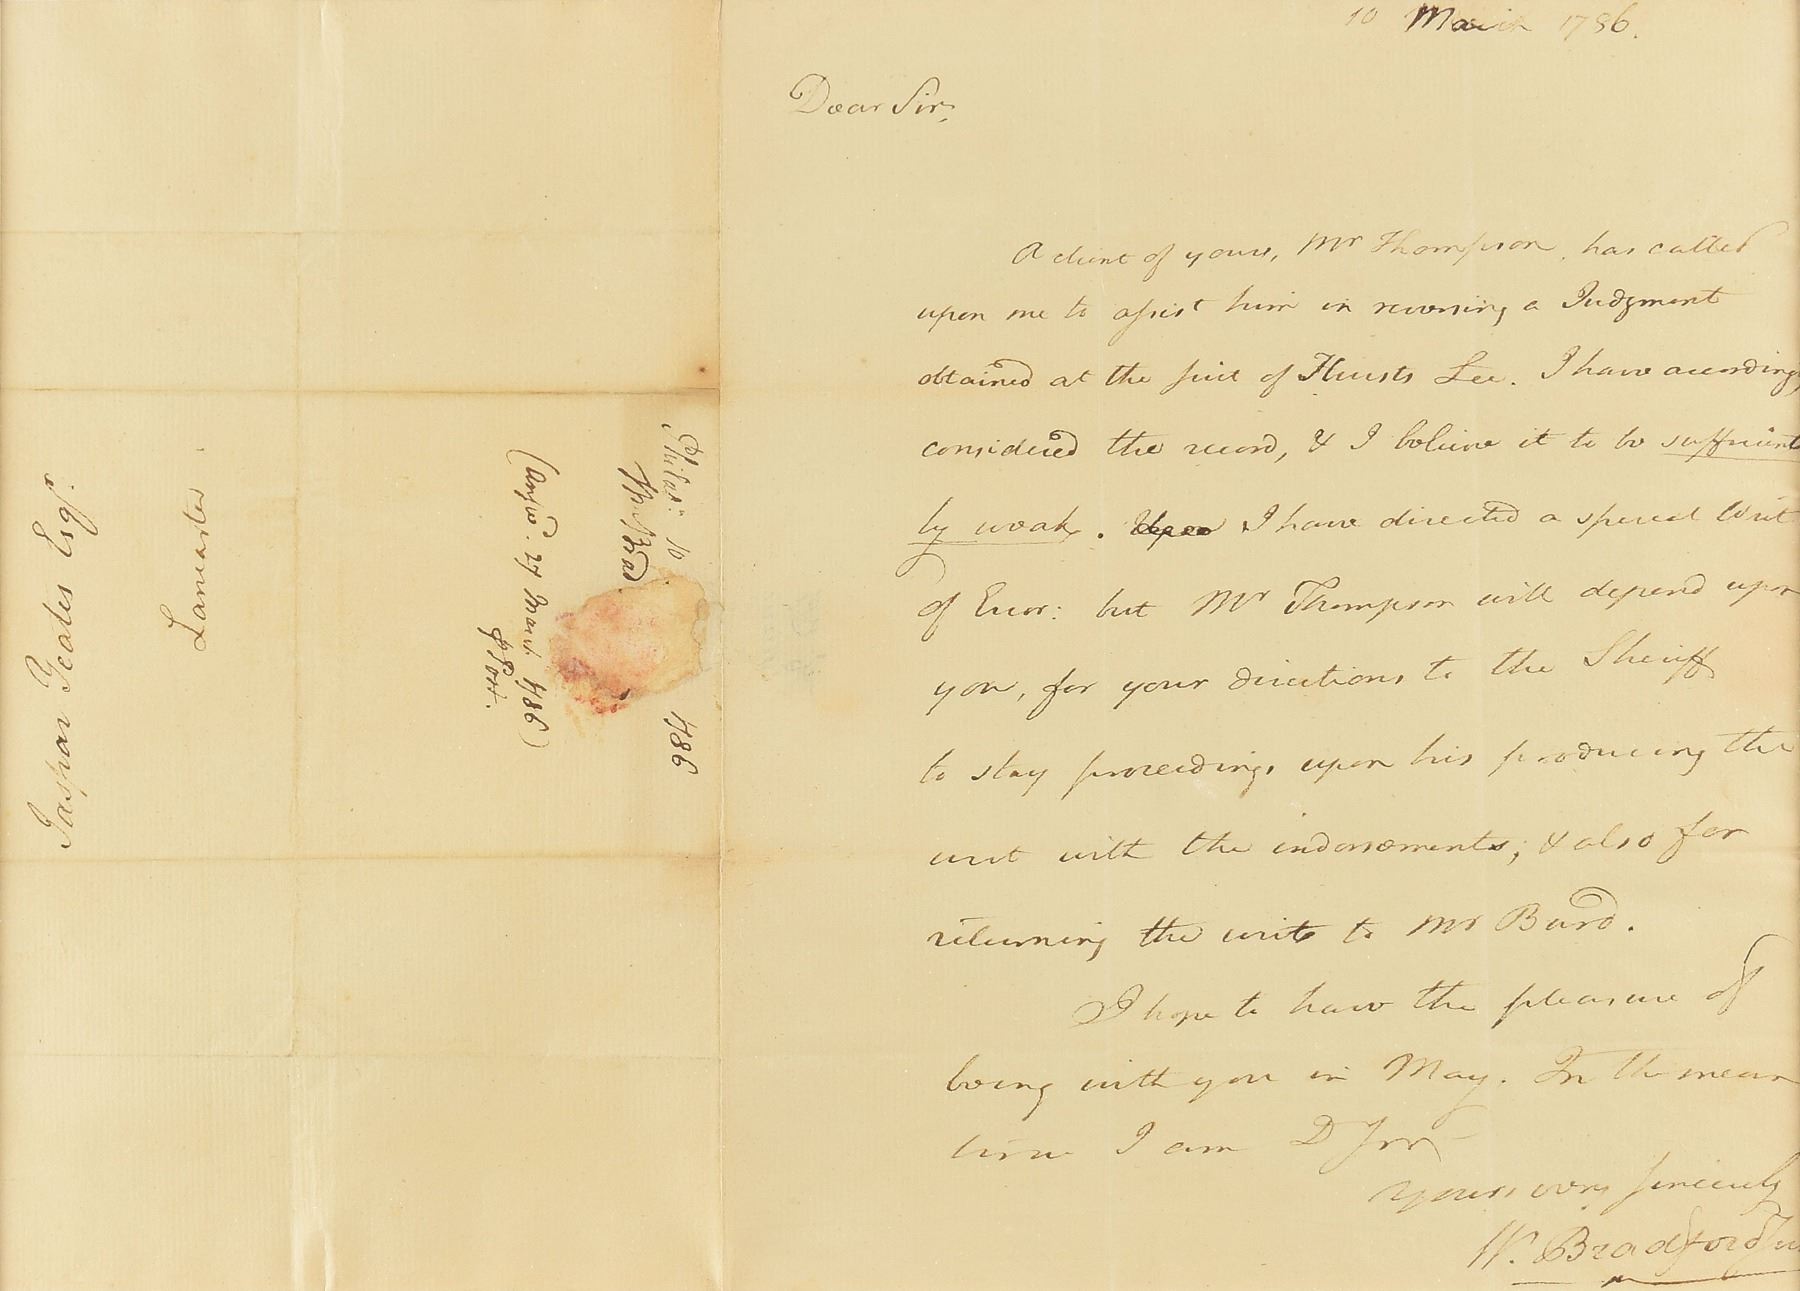 10 March 1786.
Dear Sir,
A client of yours, Mr Thompson, has called
upon me to assist him in reversing a Judgment
obtained at the suit of Lee. I have according
considered the record, & I believe it to be sufficient
ly weak. I have directed a special Writ
of Error: but Mr Thompson will depend upon
you, for your directions to the Sheriff
to stay proceedings upon his producing the
writ with the indorsements, & also for
returning the writ to Mr Burd.
I hope to have the pleasure of
being with you in May. In the mean
time I am D Sir
yours very sincerely
W. Bradford Jun
Philad: 10 1786
(Answd. 27 March 1786)
Jaspar Yeates Esqr.
Lancaster